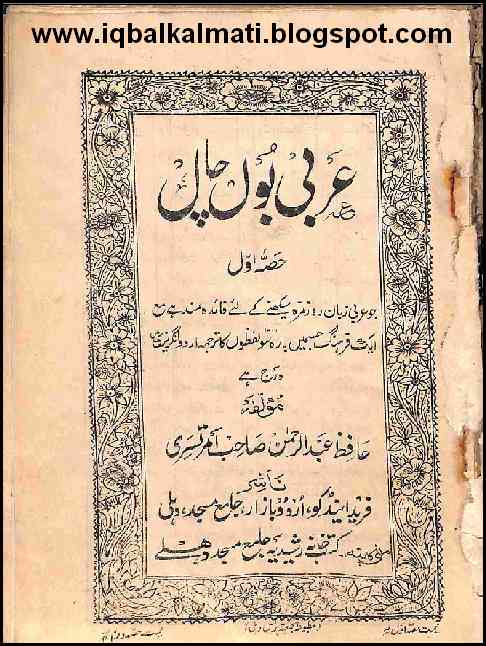 www.iqbalkalmati.blogspot.com
عربی بول چال
حصہ اول
جو عربی زبان روزمرہ سیکھنے کے لئے فائدہ مند ہے مع
ایک فرہنگ جسمیں بارہ سو لفظوں کا ترجمہ اردو انگریزی
درج ہے
مؤلفہ
حافظ عبدالرحمٰن صاحب امرتسری
ناشر
فرید اینڈ کو، اردو بازار، جامع مسجد، دہلی
کتب خانہ رشیدیہ جامع مسجد دھلے